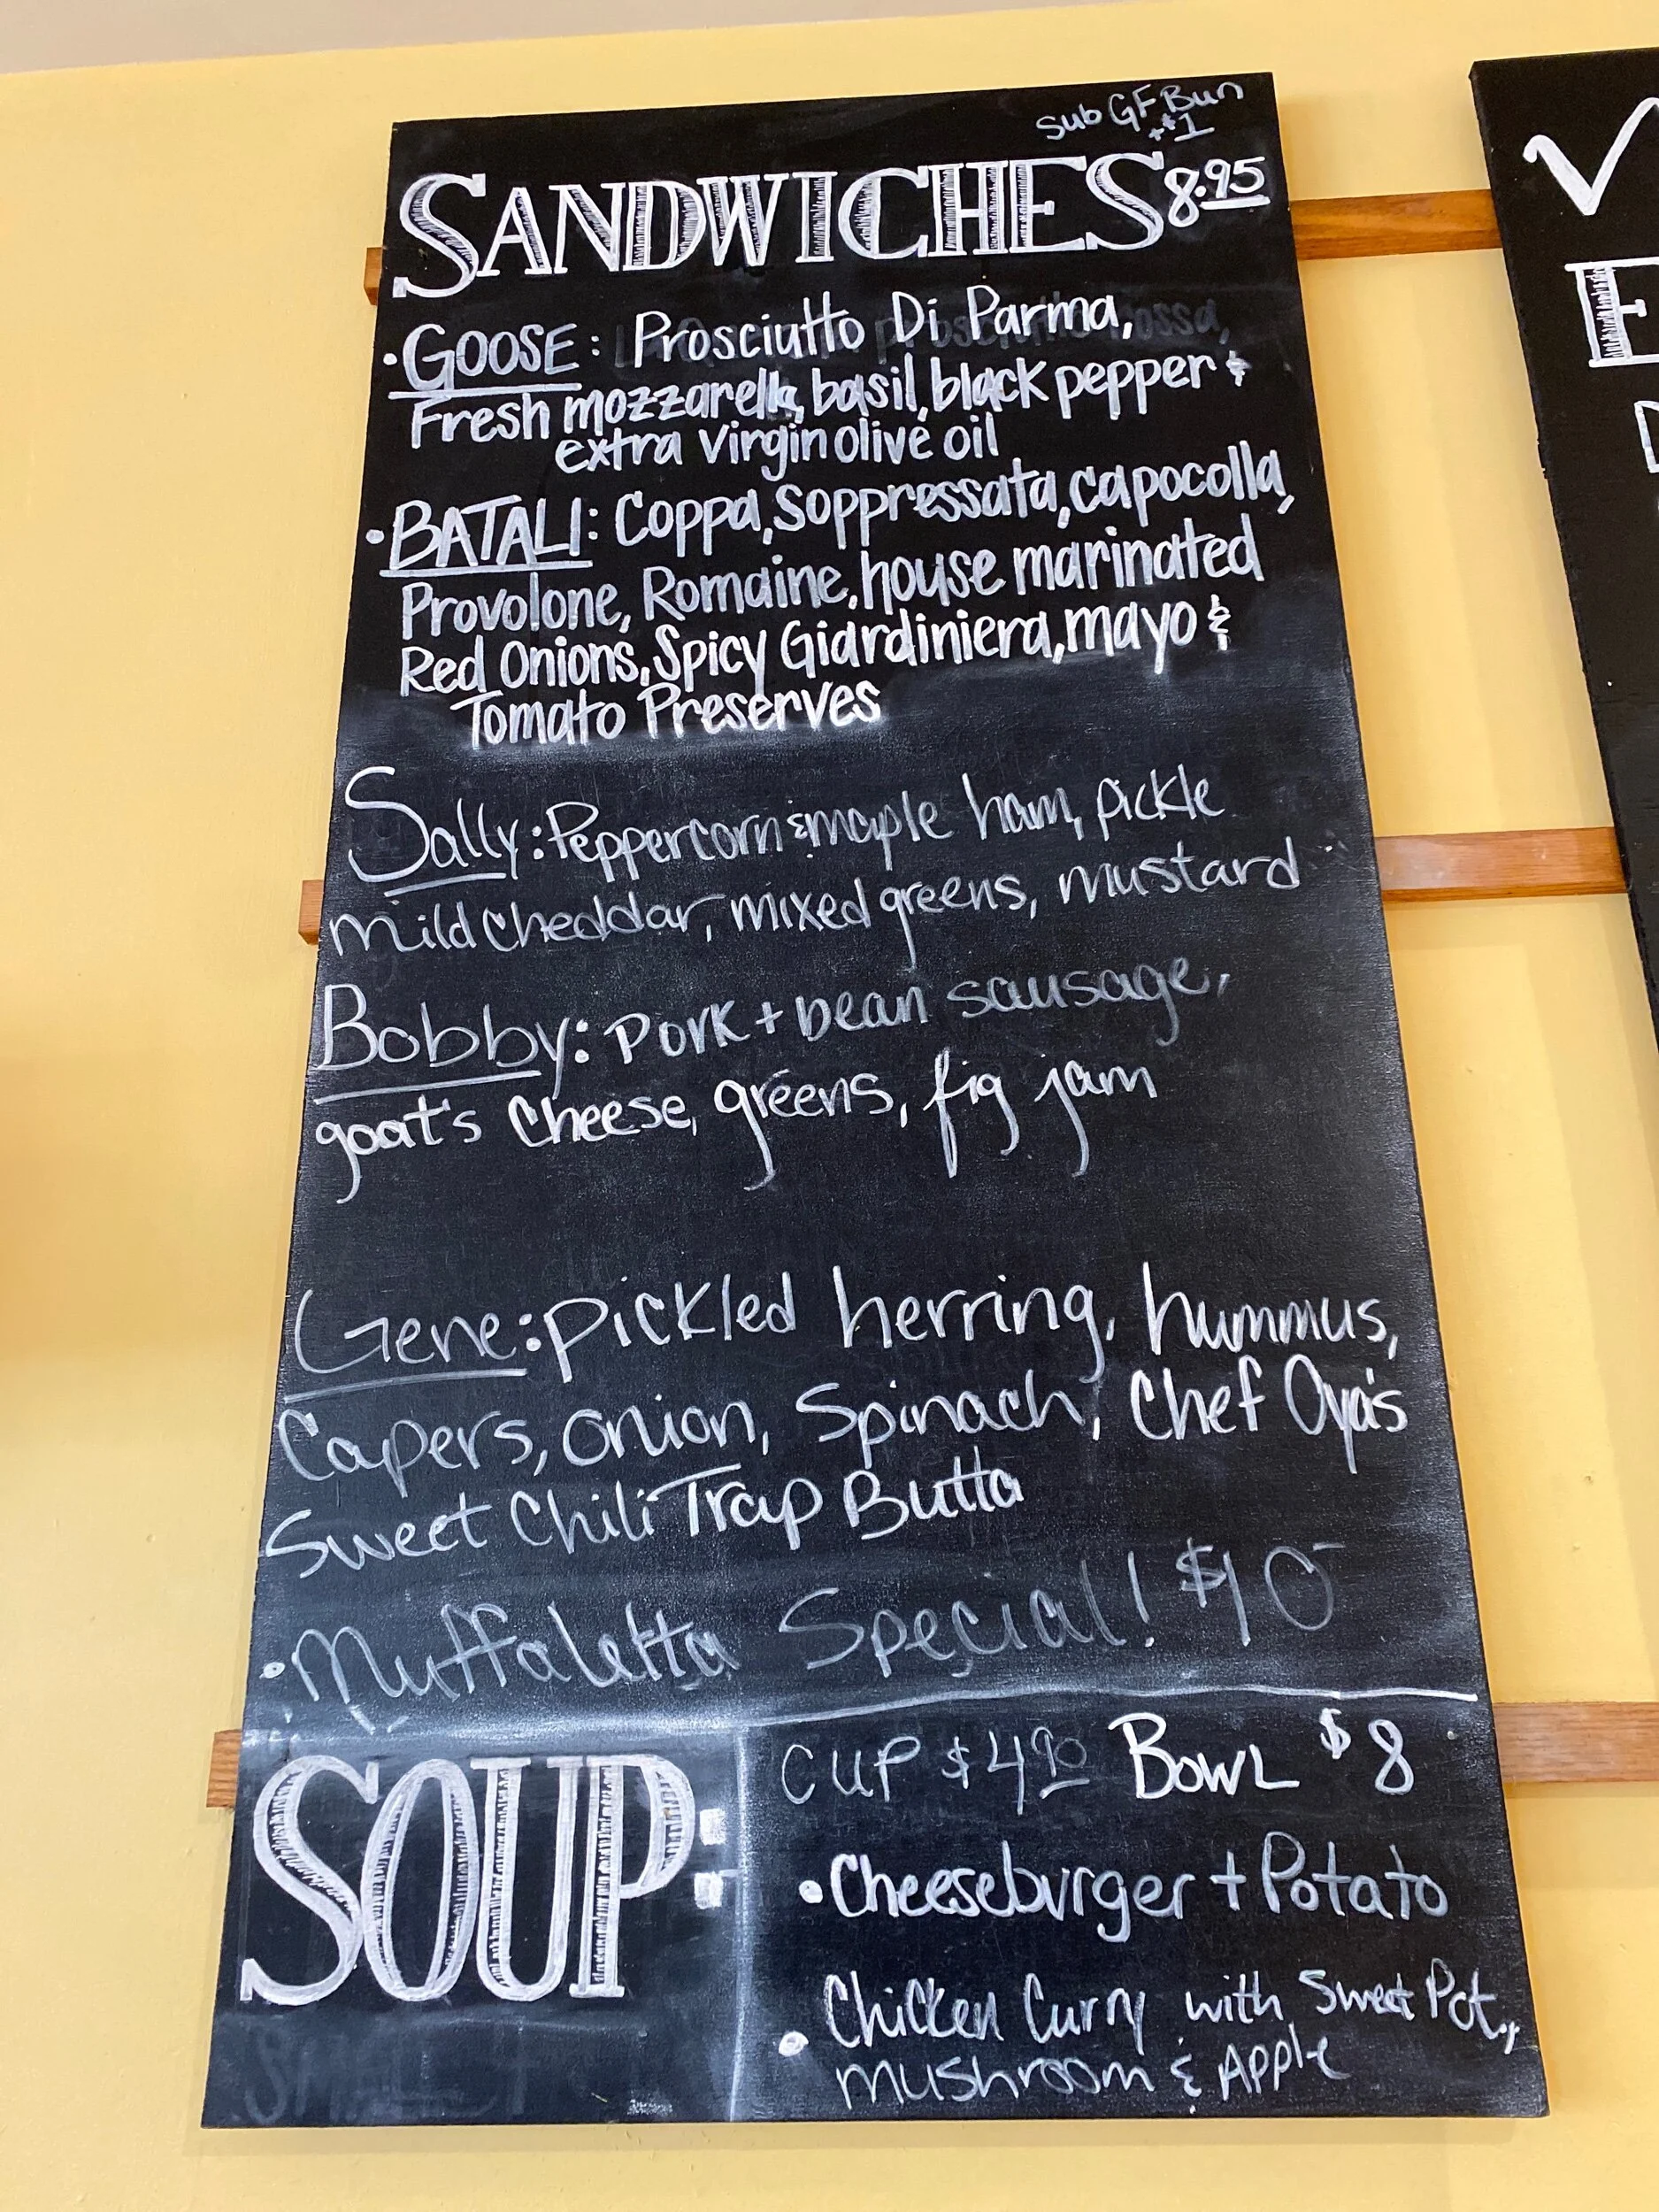 Sub GF Bun
+$1
SANDWICHES 8.95
• GOOSE: Prosciutto Di Parma,
Fresh mozzarella, basil, black pepper &
extra virgin olive oil
• BATALI: Coppa, Soppressata, capocolla,
Provolone, Romaine, house marinated
Red Onions, Spicy Giardiniera, mayo &
Tomato Preserves
Sally: Peppercorn & maple ham, pickle
mild cheddar, mixed greens, mustard
Bobby: Pork + bean sausage,
goat's cheese, greens, fig jam
Gene: pickled herring, hummus,
Capers, onion, Spinach, Chef Oya's
Sweet Chili Trap Butta
• Muffaletta Special! $10
SOUP:
CUP $4.90 BOWL $8
• Cheeseburger + Potato
• Chicken Curry with Sweet Pot.,
mushroom & Apple